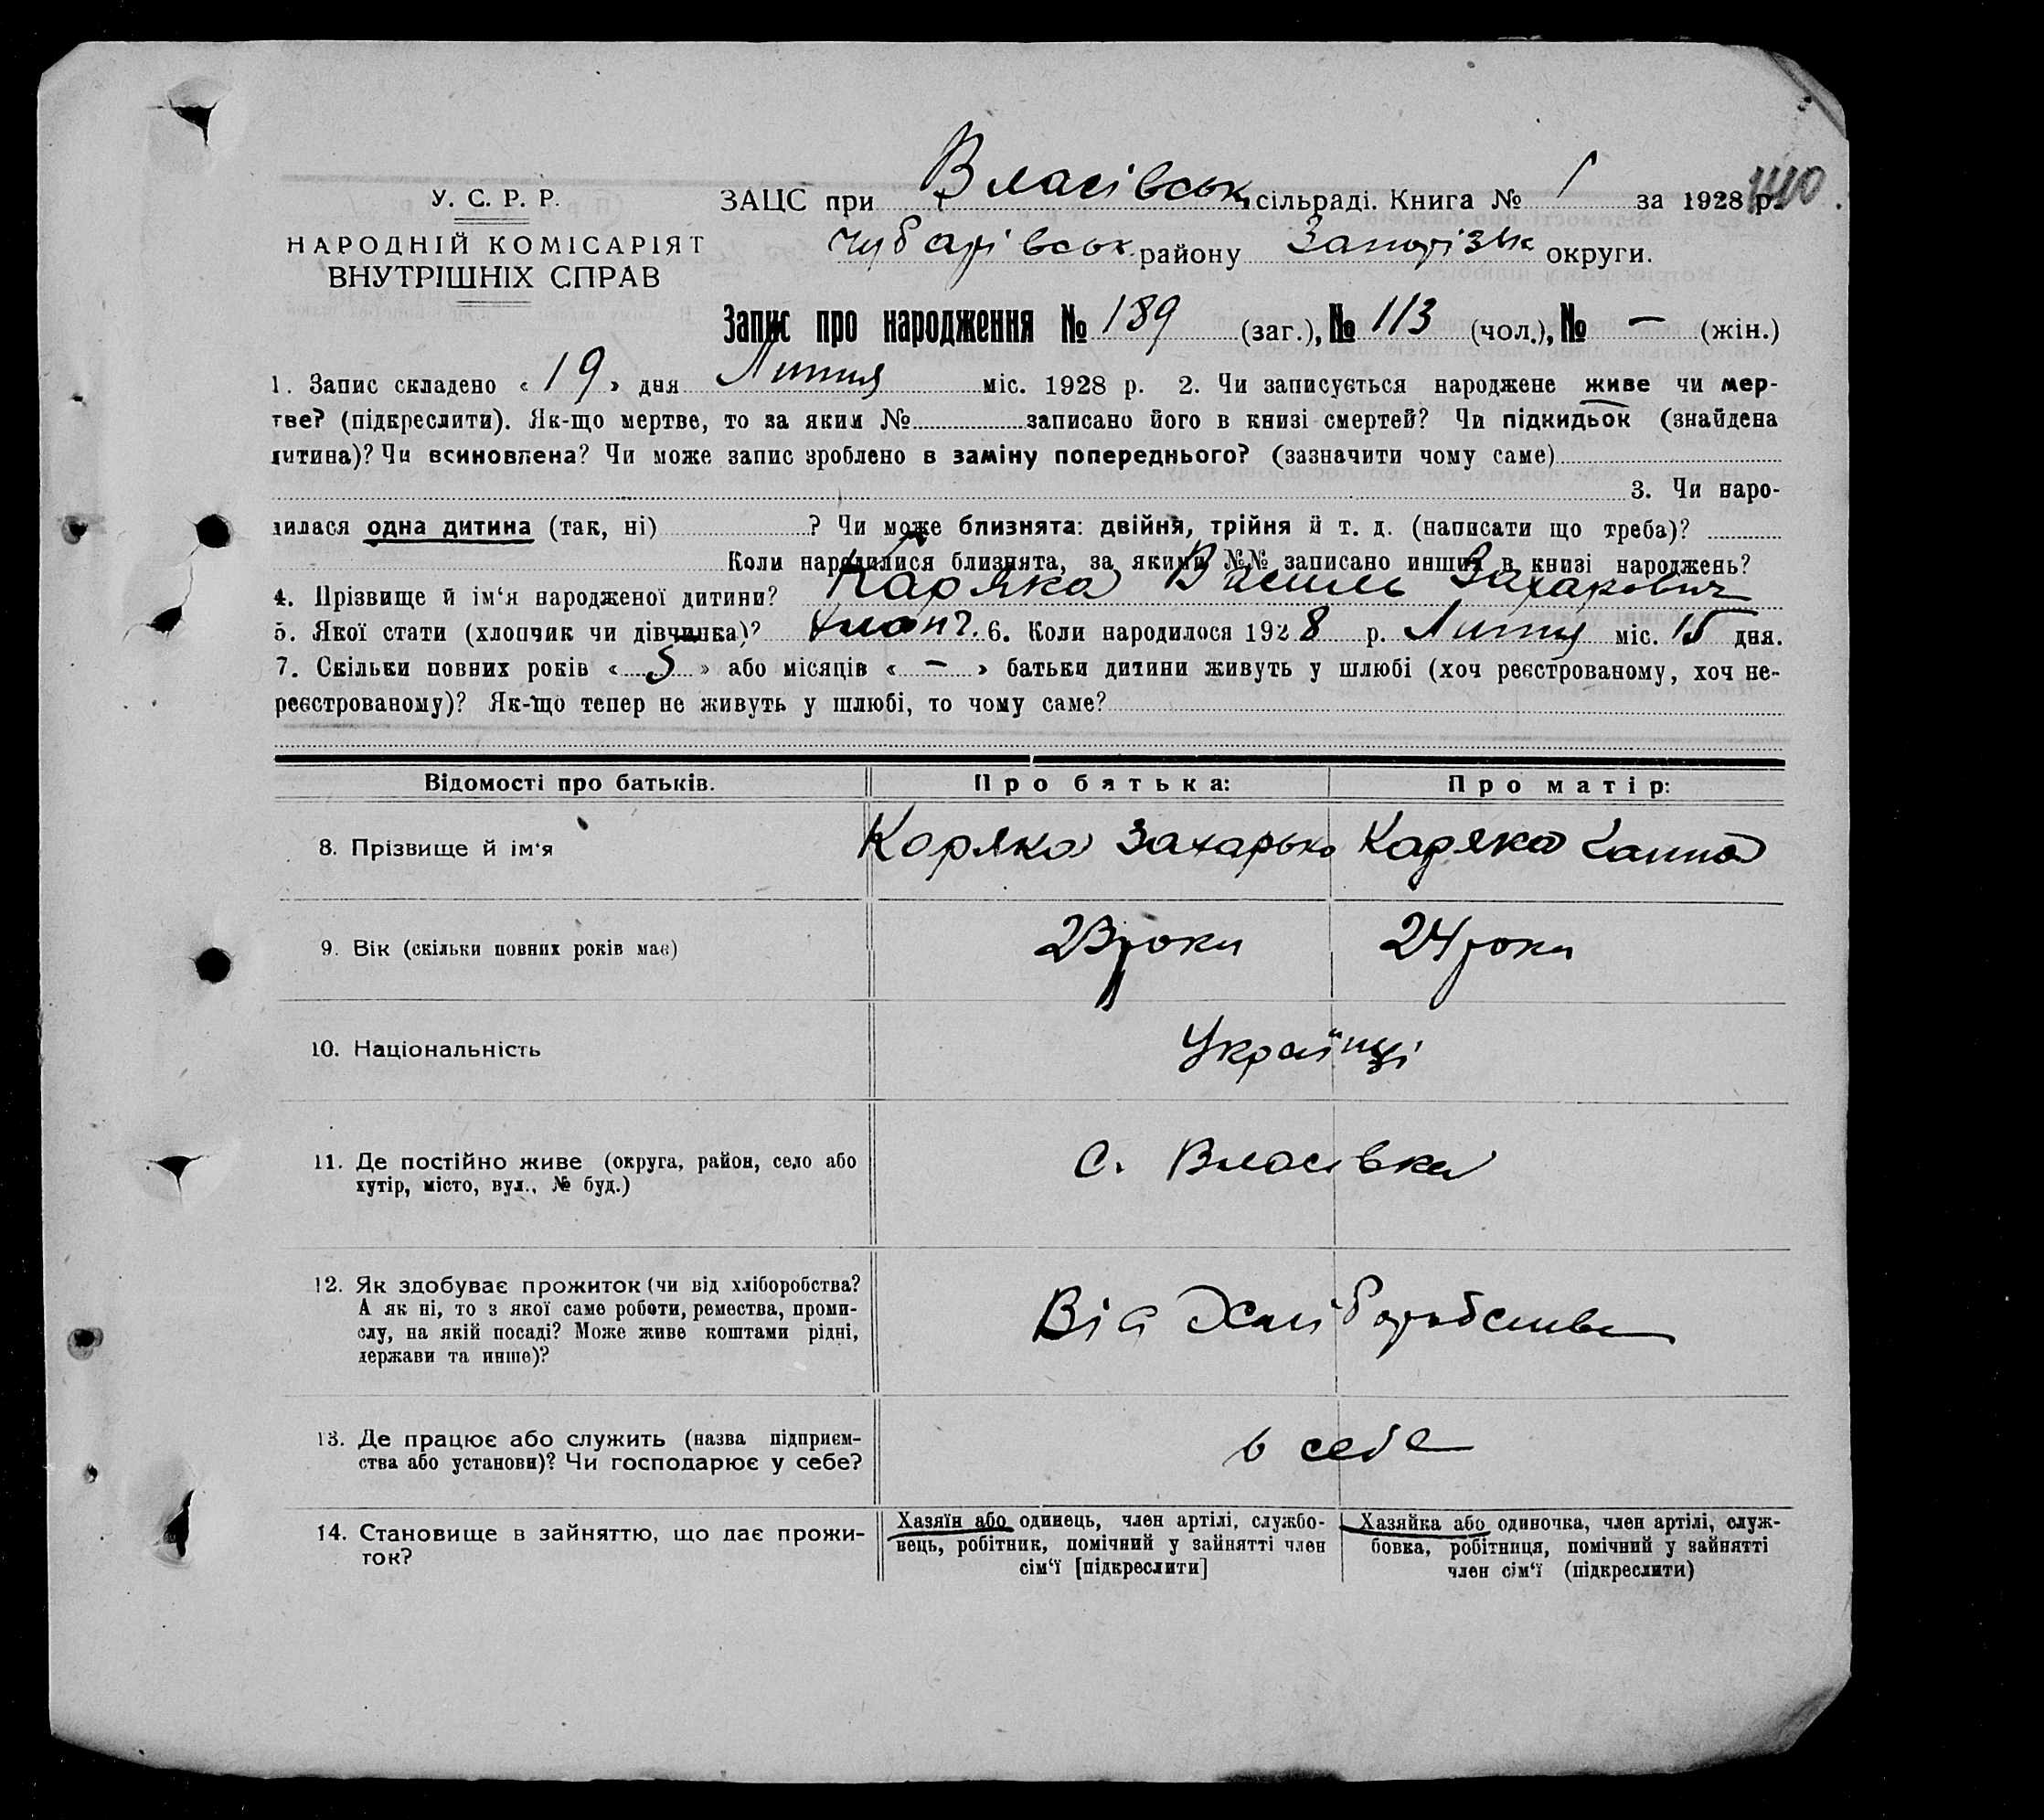 У. С. Р. Р.
НАРОДНІЙ КОМІСАРІЯТ
ВНУТРІШНІХ СПРАВ
ЗАЦС при Власівськ. сільраді. Книга № 1 за 1928 р.
Чубарівськ. району Запорізьк округи.
Запис про народження № 189 (заг.), № 113 (чол.), № — (жін.)
1. Запис складено « 19 » дня Липня міс. 1928 р. 2. Чи записується народжене живе чи мер-
тве? (підкреслити). Як-що мертве, то за яким № записано його в книзі смертей? Чи підкидьок (знайдена
дитина)? Чи всиновлена? Чи може запис зроблено в заміну попереднього? (зазначити чому саме)
3. Чи наро-
дилася одна дитина (так, ні) ? Чи може близнята: двійня, трійня й т. д. (написати що треба)?
Коли народилися близнята, за якими №№ записано инших в книзі народжень?
4. Прізвище й ім‘я народженої дитини? Каряка Василь Захарович
5. Якої стати (хлопчик чи дівчинка)? хлопч. 6. Коли народилося 1928 р. Липня міс. 15 дня.
7. Скільки повних років « 5 » або місяців « — » батьки дитини живуть у шлюбі (хоч реєстрованому, хоч не-
реєстрованому)? Як-що тепер не живуть у шлюбі, то чому саме?
Відомості про батьків. Про батька: Про матір:
8. Прізвище й ім‘я Каряка Захарько Каряка Ганна
9. Вік (скільки повних років має) 23 роки 24 роки
10. Національність Українці
11. Де постійно живе (округа, район, село або
хутір, місто, вул., № буд.) С. Власівка
12. Як здобуває прожиток (чи від хліборобства?
А як ні, то з якої саме роботи, ремества, проми-
слу, на якій посаді? Може живе коштами рідні,
держави та инше)? Від Хліборобства
13. Де працює або служить (назва підприєм-
ства або установи)? Чи господарює у себе? в себе
14. Становище в зайняттю, що дає прожи-
ток?
Хазяїн або одинець, член артілі, службо-
вець, робітник, помічний у зайнятті член
сім‘ї [підкреслити]
Хазяйка або одиночка, член артілі, служ-
бовка, робітниця, помічний у зайнятті
член сім‘ї (підкреслити)